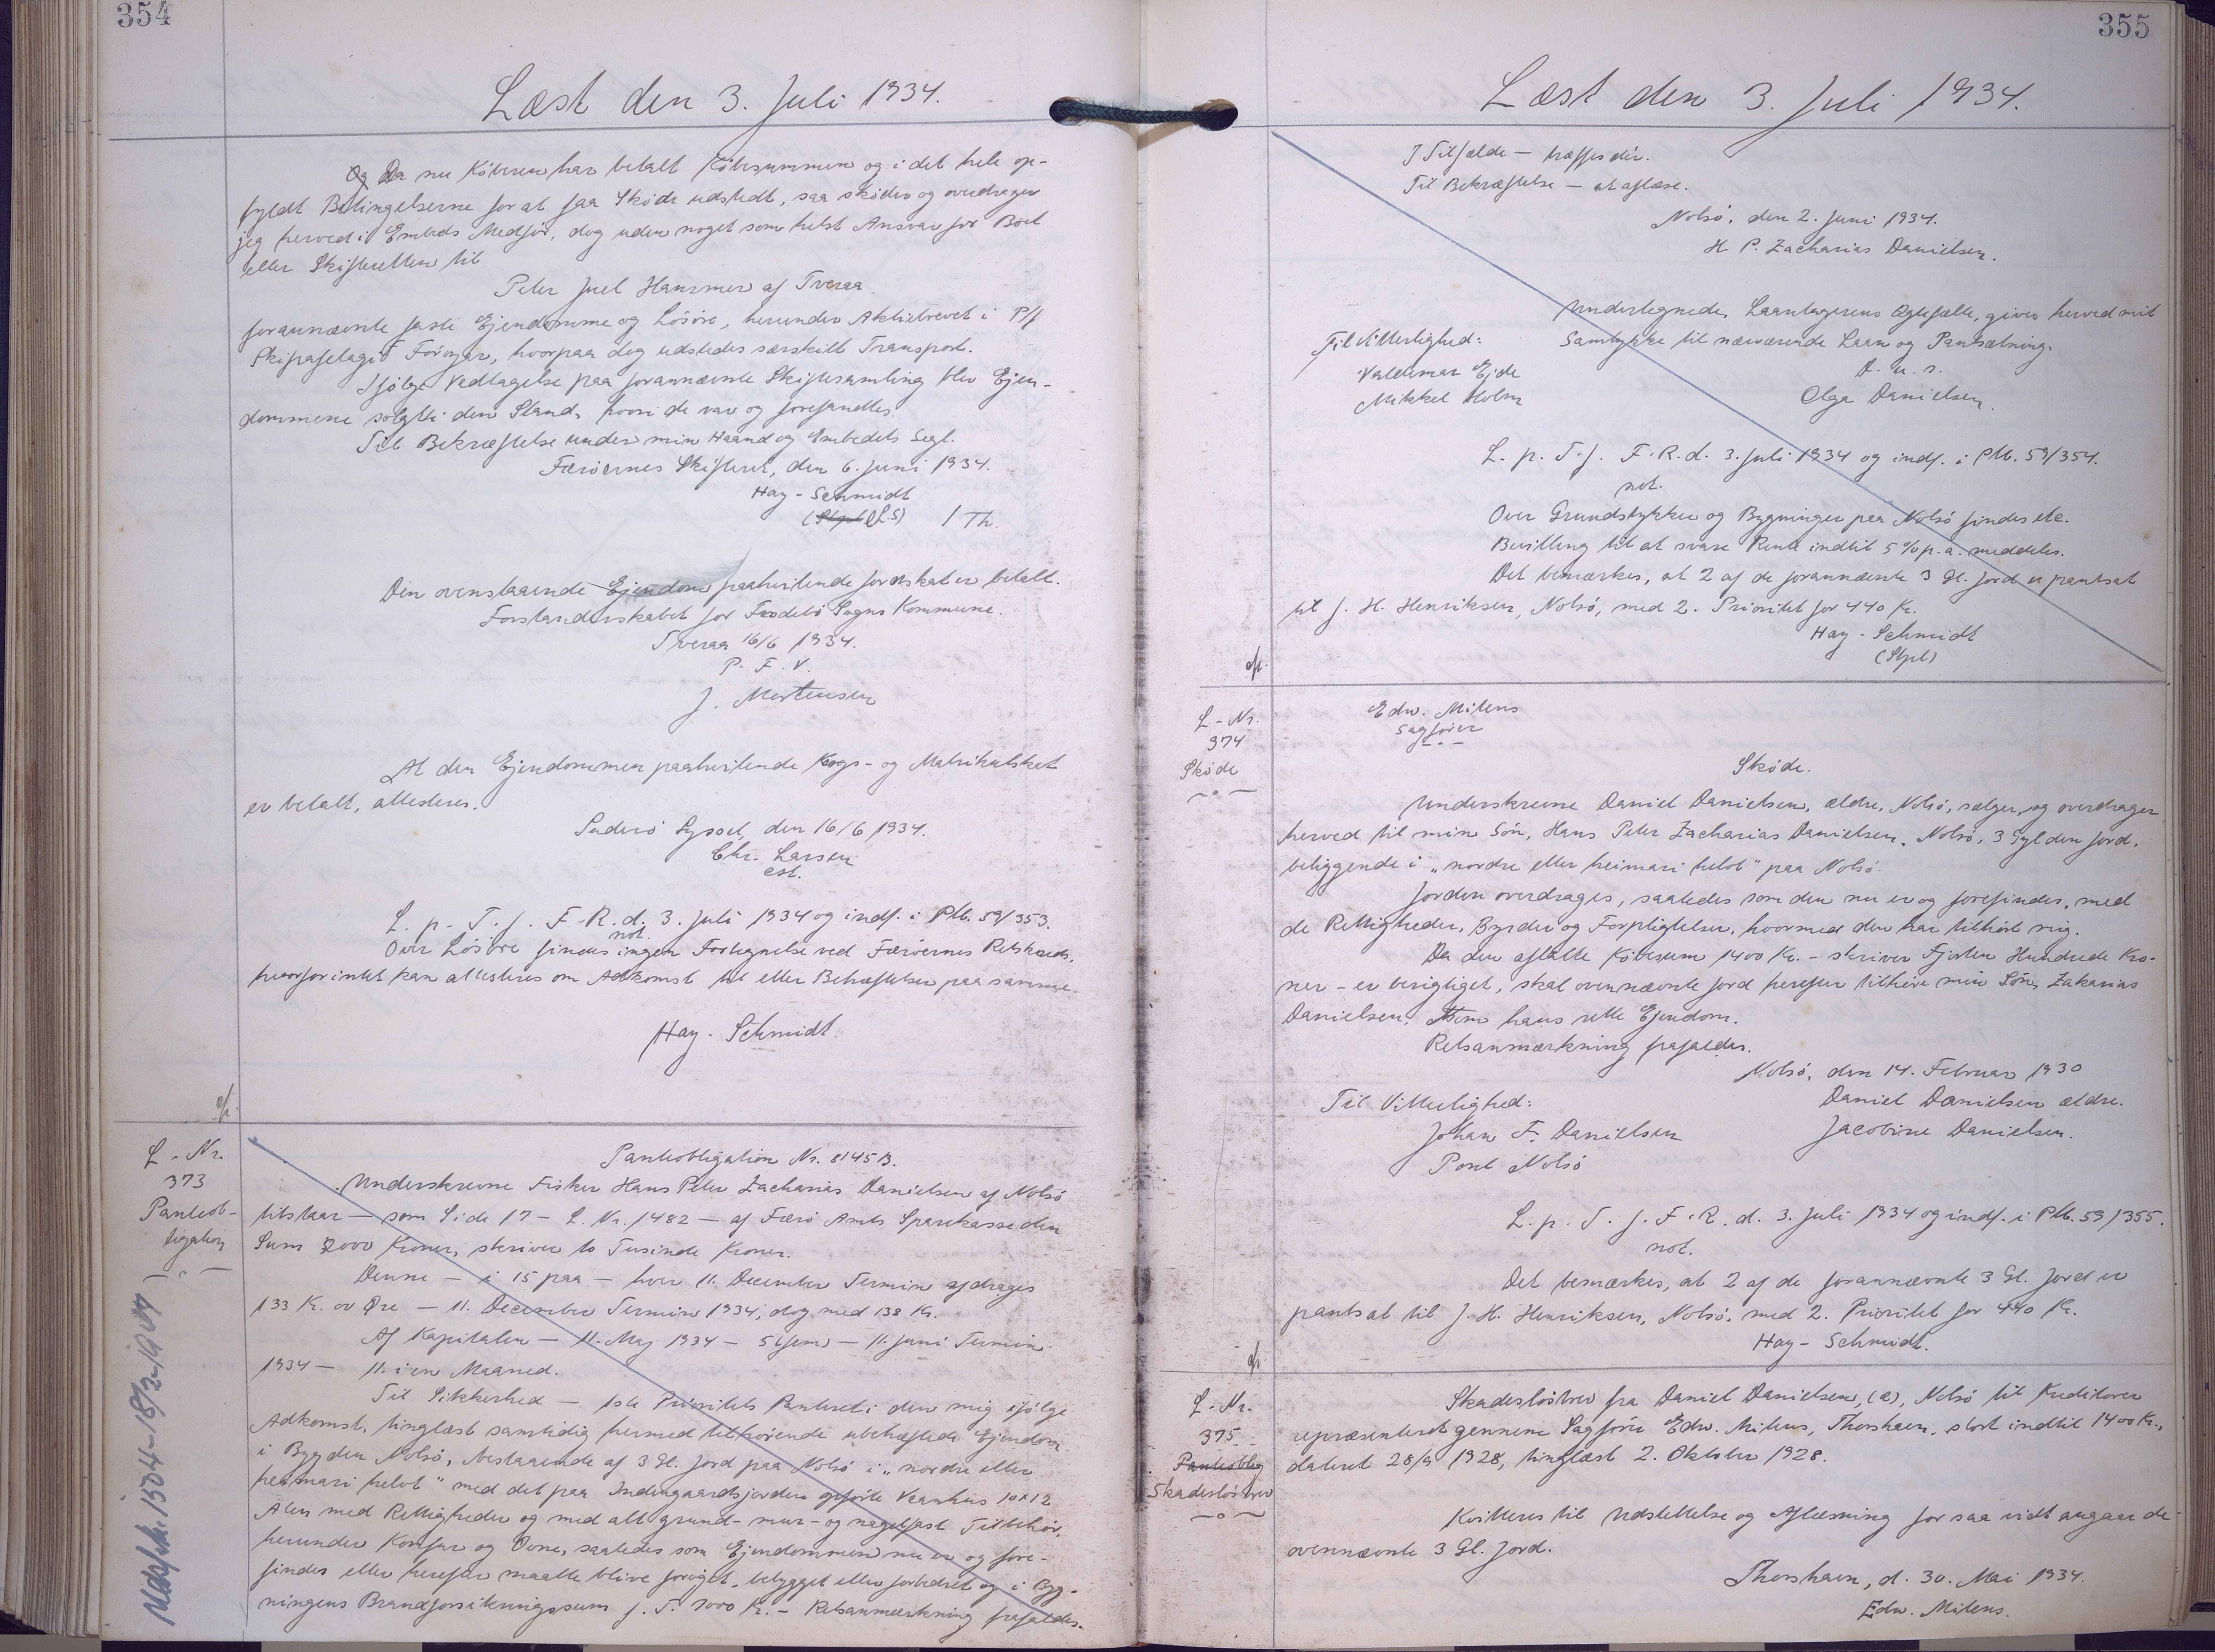 354
Læst den 3. Juli 1934.
Og Da nu Køberen har betalt Købesummen og i det hele op-
fyldt Betingelserne for at faa Skøde udstedt, saa skøder og overdrager
jeg herved i Embeds Medfør, dog uden noget som helst Ansvar for Boet
eller Skifteretten til
Peter Juel Hammer af Tveraa
forannævnte faste Ejendomme og Løsøre, herunder Aktiebrevet i P/f
Skipafelagið Føroyar, hvorpaa dog udstedes særskilt Transport.
Ifølge Vedtagelse paa forannævnte Skiftesamling blev Ejen-
dommene solgt i den Stand, hvori de var og forefandtes.
Til Bekræftelse under min Haand og Embedets Segl.
Færøernes Skifteret, den 6. Juni 1934.
Hay-Schmidt
(L.S) / Th.
Den ovenstaaende Ejendom paahvilende Jordskat er betalt.
Forstanderskabet for Frodebø Sogns Kommune.
Tveraa 16/6 1934.
P. F. V.
J. Mortensen
At den Ejendommen paahvilende Kogs- og Matrikulskat
er betalt, attesteres.
Suderø Syssel, den 16/6 1934.
Chr. Larsen
cst.
L. p. T. f. F. R. d. 3. Juli 1934 og indf. i Pb. 59/353.
not.
Over Løsøre findes ingen Fortegnelse ved Færøernes Retskreds,
hvorfor intet kan attesteres om Adkomst til eller Behæftelser paa samme.
Hay-Schmidt.
L-Nr.
373
Panteob-
ligation
Pantobligation Nr. 8145 B.
Underskrevne Fisker Hans Peter Zacharias Danielsen af Nolsø
tilstaar — som Side 17 — L. Nr. 1482 — af Færø Amts Sparekasse den
Sum 2000 Kroner, skriver to Tusinde Kroner.
Denne — i 15 paa — hver 11. December Termin afdrages
133 Kr. Øre — 11. December Termin 1934, dog med 138 Kr.
Af Kapitalen — 11. Maj 1934 — 5 (fem) — 11. Juni Termin
1934 — 11. i en Maaned.
Til Sikkerhed — 1ste Prioritets Panteret i den mig ifølge
Adkomst, tinglæst samtidig hermed tilhørende ubehæftede Ejendom
i Bygden Nolsø, bestaaende af 3 Gl. Jord paa Nolsø i „nordre eller
heimari helvt" med det paa Indengaardsjorden opførte Vaanhus 10x12
Alen med Rettigheder og med alt grund- mur- og nagelfast Tilbehør,
herunder Komfur og Ovne, saaledes som Ejendommen nu er og fore-
findes eller herefter maatte blive forøget, bebygget eller forbedret og i Byg-
ningens Brandforsikringssum f. T. Kr. — Retsanmærkning frafaldes.
355
Læst den 3. Juli 1934.
I Tilfælde — træffes dér.
Til Bekræftelse — at aflæse.
Nolsø, den 2. Juni 1934.
H. P. Zacharias Danielsen.
Undertegnede, Laantagerens Ægtefælle, giver herved mit
Samtykke til nærværende Laan og Pantsætning.
Til Vitterlighed:
Valdemar Ejde
Mikkel Holm
D. u. s.
Olga Danielsen.
L. p. T. f. F. R. d. 3. Juli 1934 og indf. i Pb. 59/354.
not.
Over Grundstykker og Bygninger paa Nolsø findes etc.
Bevilling til at svare Rente indtil 5 % p. a. meddeles.
Det bemærkes, at 2 af de forannævnte 3 Gl. Jord er pantsat
til J. H. Henriksen, Nolsø, med 2. Prioritet for 440 Kr.
Hay-Schmidt
(Stpl)
L-Nr.
374
Skøde
Edw. Mitens
Sagfører
Skøde.
Underskrevne Daniel Danielsen, ældre, Nolsø, sælger og overdrager
herved til min Søn, Hans Peter Zacharias Danielsen, Nolsø, 3 Gylden Jord,
beliggende i „nordre eller heimari helvt" paa Nolsø.
Jorden overdrages, saaledes som den nu er og forefindes, med
de Rettigheder, Byrder og Forpligtelser, hvormed den har tilhørt mig.
Da den aftalte Købesum 1400 Kr. — skriver Fjorten Hundrede Kro-
ner — er berigtiget, skal ovennævnte Jord herefter tilhøre min Søn, Zakarias
Danielsen, som hans rette Ejendom.
Retsanmærkning frafaldes.
Nolsø, den 14. Februar 1930
Til Vitterlighed:
Daniel Danielsen ældre.
Johan F. Danielsen
Jacobine Danielsen.
Poul Nolsø
L. p. T. f. F. R. d. 3. Juli 1934 og indf. i Pb. 59/355.
not.
Det bemærkes, at 2 af de forannævnte 3 Gl. Jord er
pantsat til J. H. Henriksen, Nolsø, med 2. Prioritet for 440 Kr.
Hay-Schmidt.
L-Nr.
375
Panteoblig
Skadesløsbrev
Skadesløsbrev fra Daniel Danielsen, (æ), Nolsø til Kreditorer
repræsenteret gennem Sagfører Edw. Mitens, Thorshavn, stort indtil 1400 Kr.,
dateret 28/9 1928, tinglæst 2. Oktober 1928.
Kvitteres til Udslettelse og Aflæsning for saa vidt angaar de
ovennævnte 3 Gl. Jord.
Thorshavn, d. 30. Mai 1934.
Edw. Mitens.